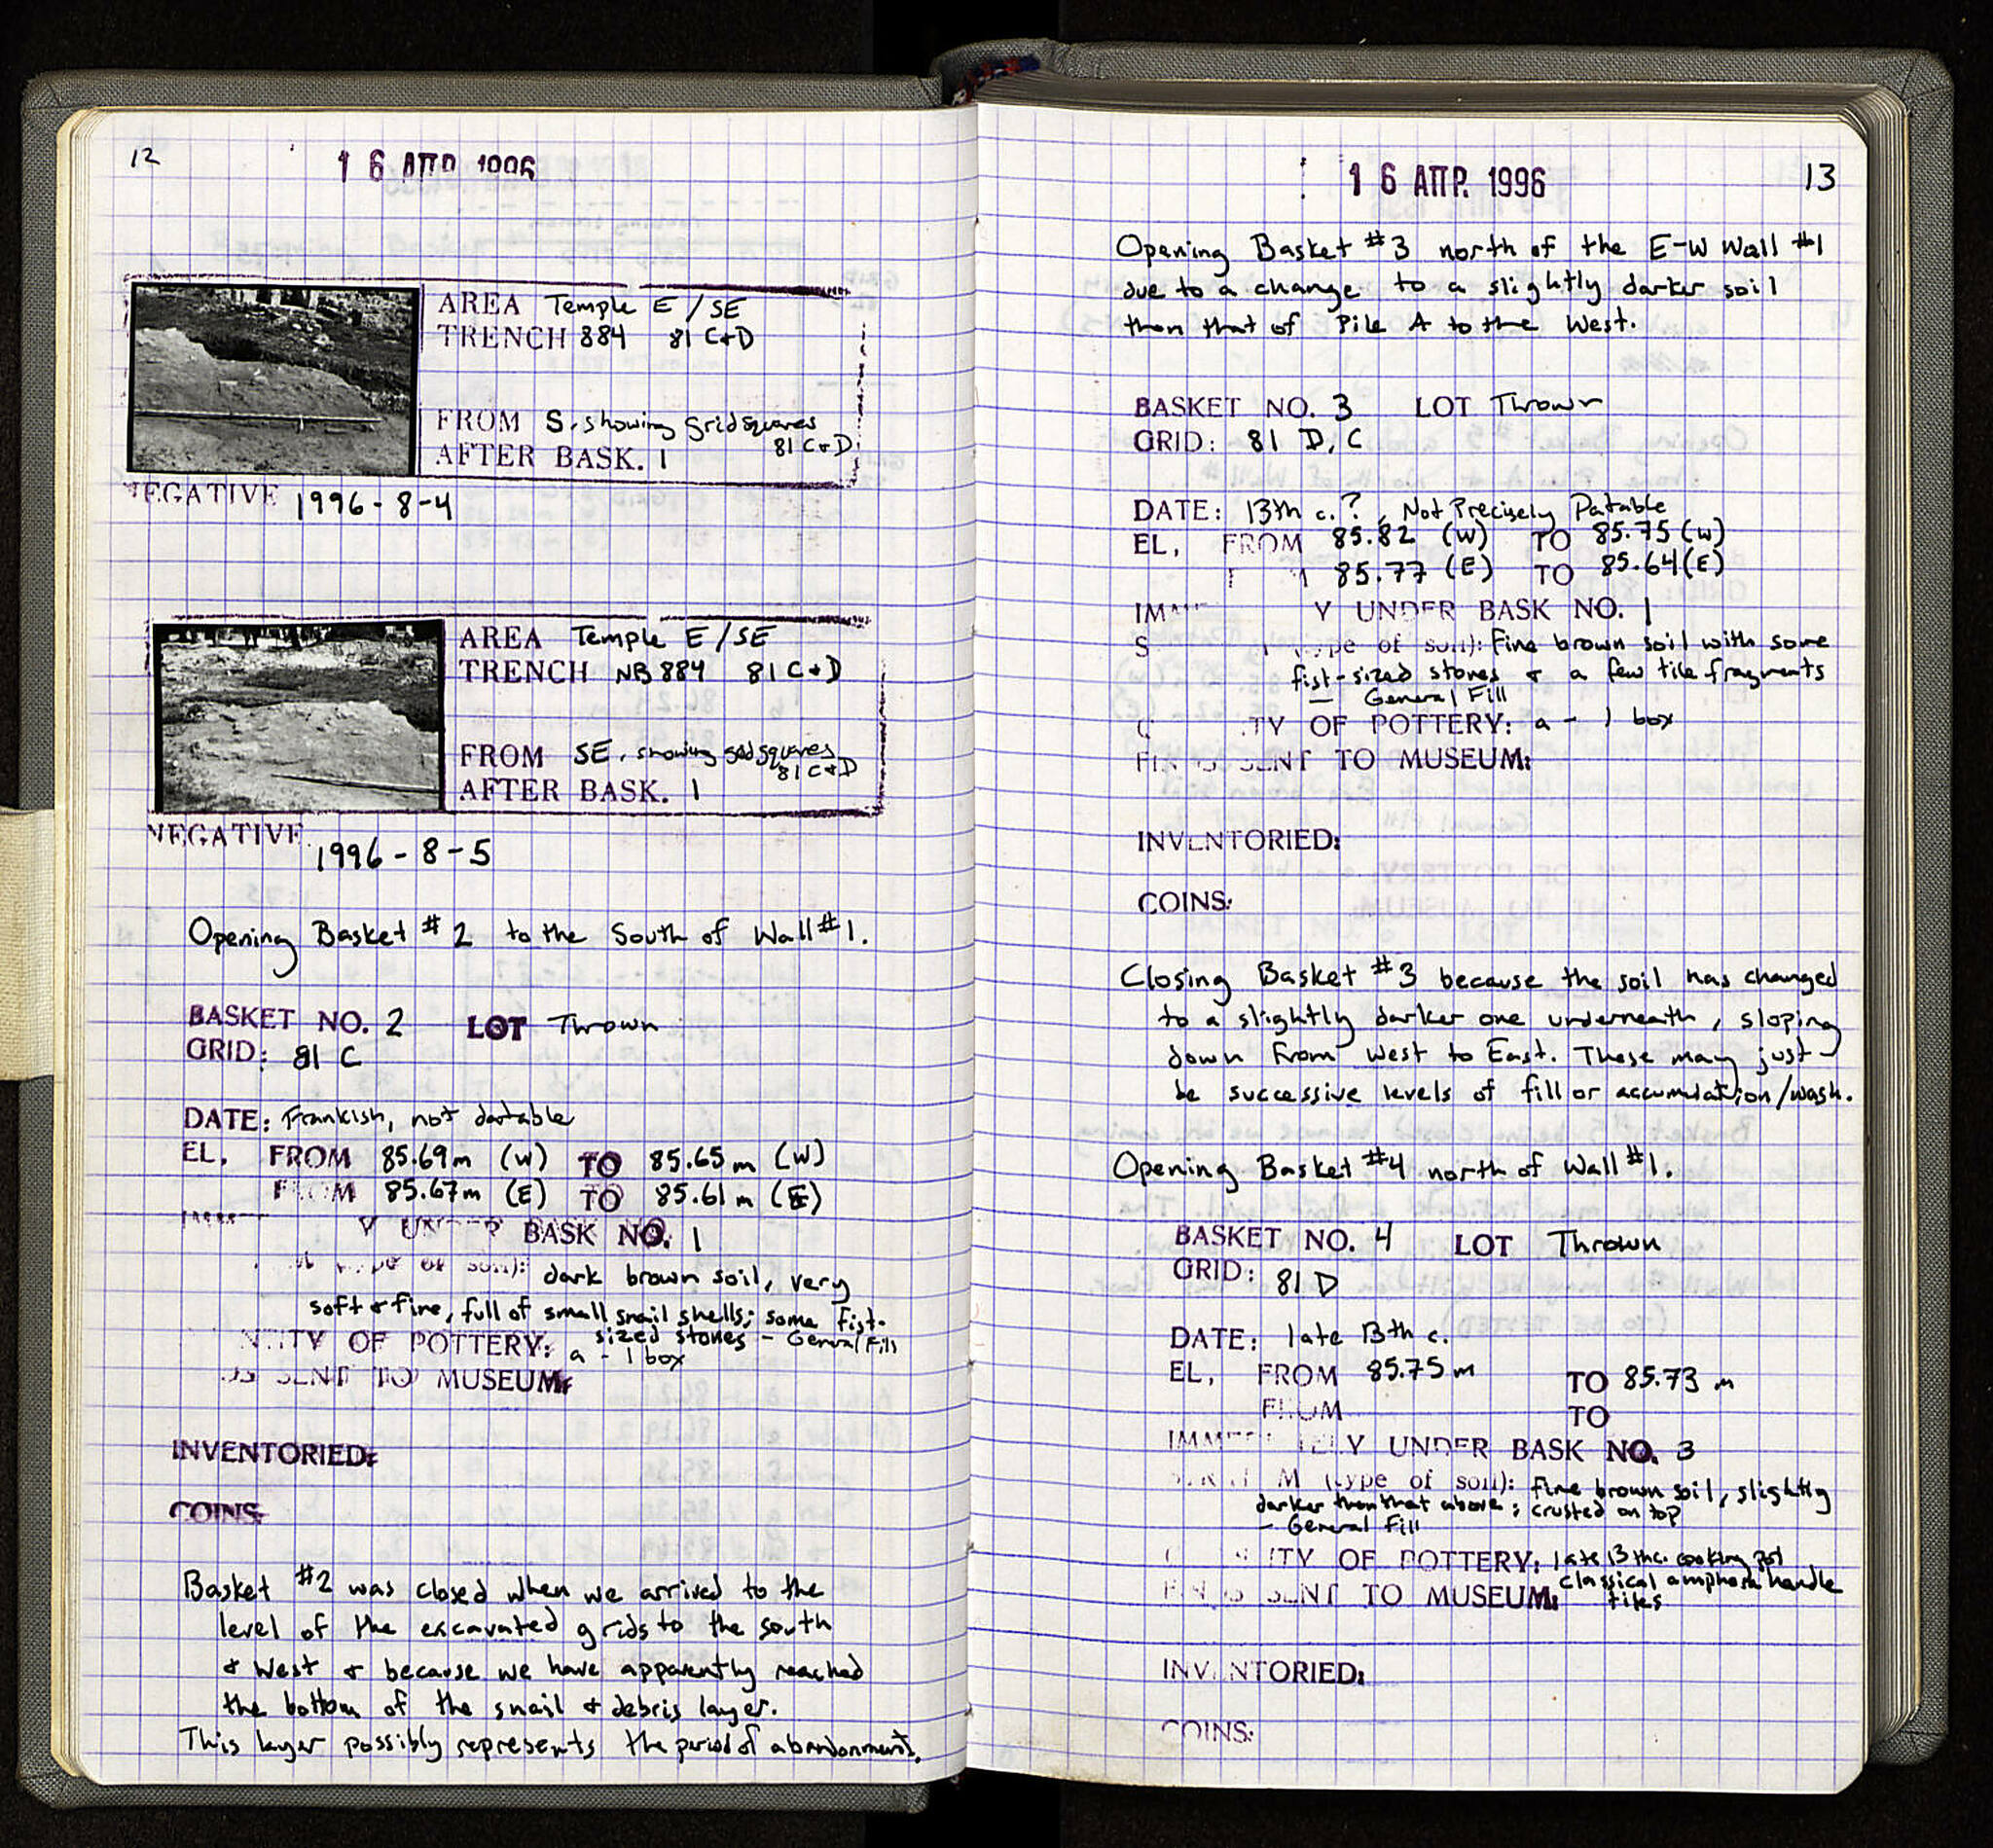 12
16 ΑΠΡ 1996
AREA Temple E/SE
TRENCH 884 81 C+D
FROM S, showing gridsquares
81 C+D
AFTER BASK. 1
NEGATIVE 1996-8-4
AREA Temple E/SE
TRENCH NB 884 81 C+D
FROM SE, showing gridsquares
81 C+D
AFTER BASK. 1
NEGATIVE 1996-8-5
Opening Basket #2 to the South of Wall #1.
BASKET NO. 2 LOT Thrown
GRID: 81 C
DATE: Frankish, not datable
EL, FROM 85.69m (W) TO 85.65m (W)
FROM 85.67m (E) TO 85.61m (E)
Y UNDER BASK NO. 1
(type of soil): dark brown soil, very
soft + fine, full of small snail shells; some fist-
sized stones - General Fill
NTITY OF POTTERY: a - 1 box
DS SENT TO MUSEUM:
INVENTORIED:
COINS:
Basket #2 was closed when we arrived to the
level of the excavated grids to the south
+ West + because we have apparently reached
the bottom of the snail + debris layer.
This layer possibly represents the period of abandonment.
16 ΑΠΡ. 1996
13
Opening Basket #3 north of the E-W Wall #1
due to a change to a slightly darker soil
than that of Pile A to the West.
BASKET NO. 3 LOT Thrown
GRID: 81 D, C
DATE: 13th c.?, Not Precisely Datable
EL, FROM 85.82 (W) TO 85.75 (W)
85.77 (E) TO 85.64 (E)
IM Y UNDER BASK NO. 1
S (type of soil): Fine brown soil with some
fist-sized stones + a few tile fragments
— General Fill
TY OF POTTERY: a - 1 box
FINDS SENT TO MUSEUM:
INVENTORIED:
COINS:
Closing Basket #3 because the soil has changed
to a slightly darker one underneath, sloping
down from West to East. These may just
be successive levels of fill or accumulation/wash.
Opening Basket #4 north of Wall #1.
BASKET NO. 4 LOT Thrown
GRID: 81 D
DATE: late 13th c.
EL, FROM 85.75 m TO 85.73 m
FROM TO
IMMEDIATELY UNDER BASK NO. 3
M (type of soil): fine brown soil, slightly
darker than that above; crusted on top
- General Fill
ITY OF POTTERY: late 13th c. cooking pot
classical amphora handle
FINDS SENT TO MUSEUM: tiles
INVENTORIED:
COINS: